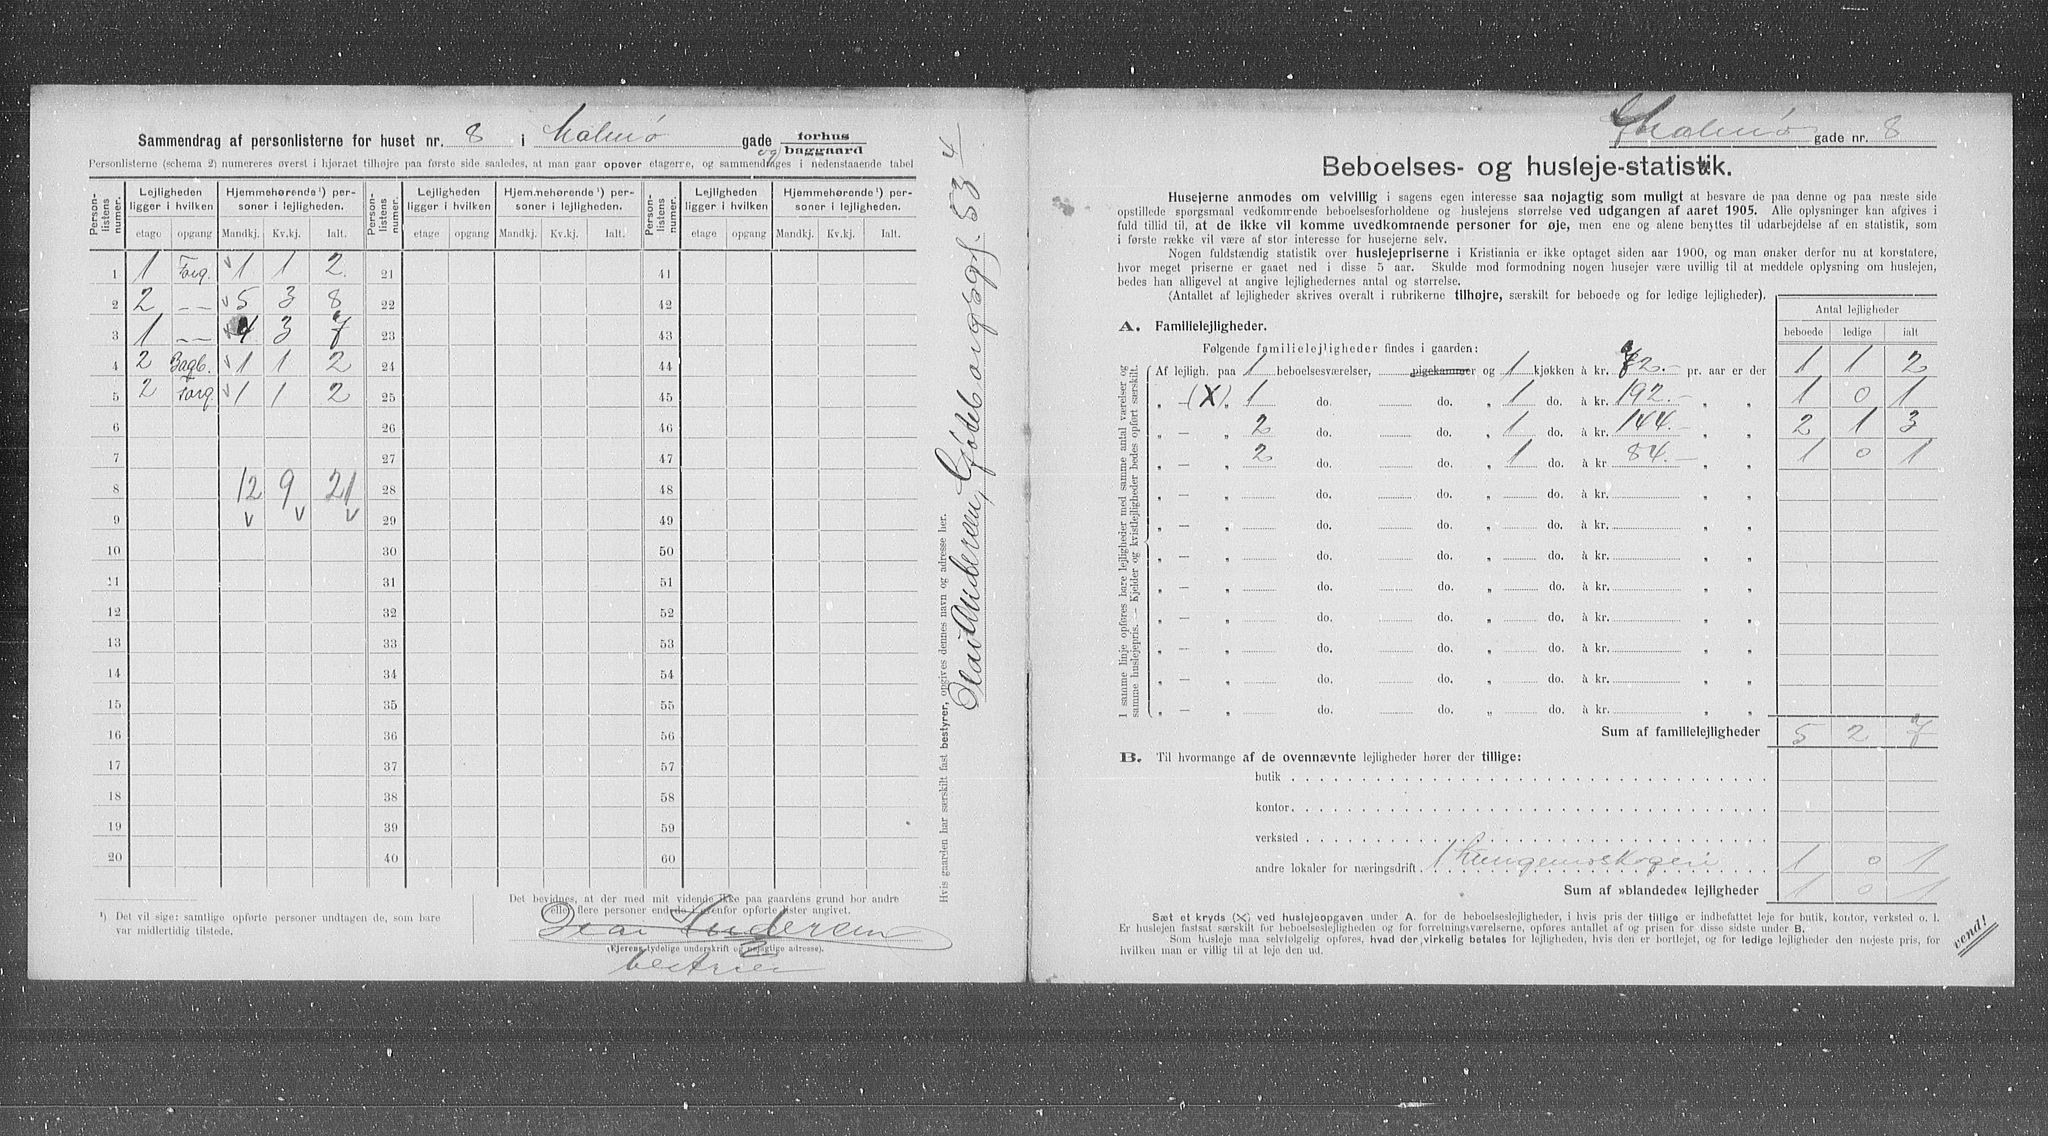 Sammendrag af personlisterne for huset nr. 8 i Malmø gade forhus og baggaard
Personlisterne (schema 2) numereres øverst i hjørnet tilhøjre paa første side saaledes, at man gaar opover etagerre, og sammendrages i nedenstaaende tabel
Person-listens numer. Lejligheden ligger i hvilken Hjemmehørende¹) personer i lejligheden. Person-listens numer. Lejligheden ligger i hvilken Hjemmehørende¹) personer i lejligheden. Person-listens numer. Lejligheden ligger i hvilken Hjemmehørende¹) personer i lejligheden.
etage opgang Mandkj. Kv.kj. Ialt. etage opgang Mandkj. Kv.kj. Ialt. etage opgang Mandkj. Kv.kj. Ialt.
1 1 Forg. 1 1 2. 21 41
2 2 -„- 5 3 8 22 42
3 1 -„- 4 3 7 23 43
4 2 Bagb. 1 1 2 24 44
5 2 Forg. 1 1 2 25 45
6 26 46
7 27 47
8 12 9 21 28 48
9 29 49
10 30 50
11 31 51
12 32 52
13 33 53
14 34 54
15 35 55
16 36 56
17 37 57
18 38 58
19 39 59
20 40 60
¹) Det vil sige: samtlige opførte personer undtagen de, som bare
var midlertidig tilstede.
Det bevidnes, at der med mit vidende ikke paa gaardens grund bor andre
eller flere personer end de i ovenfor opførte lister angivet.
Olai Andersen
(Ejerens tydelige underskrift og nøjagtige adresse).
bestrier
Hvis gaarden har særskilt fast bestyrer, opgives dennes navn og adresse her.
Olai Andersen, Gjøteborggd. 53 4
Malmø gade nr. 8
Beboelses- og husleje-statistik.
Husejerne anmodes om velvillig i sagens egen interesse saa nøjagtig som muligt at besvare de paa denne og paa næste side
opstillede spørgsmaal vedkommende beboelsesforholdene og huslejens størrelse ved udgangen af aaret 1905. Alle oplysninger kan afgives i
fuld tillid til, at de ikke vil komme uvedkommende personer for øje, men ene og alene benyttes til udarbejdelse af en statistik, som
i første række vil være af stor interesse for husejerne selv.
Nogen fuldstændig statistik over huslejepriserne i Kristiania er ikke optaget siden aar 1900, og man ønsker derfor nu at konstatere,
hvor meget priserne er gaaet ned i disse 5 aar. Skulde mod formodning nogen husejer være uvillig til at meddele oplysning om huslejen,
bedes han alligevel at angive lejlighedernes antal og størrelse.
(Antallet af lejligheder skrives overalt i rubrikerne tilhøjre, særskilt for beboede og for ledige lejligheder).
Antal lejligheder
beboede ledige ialt
A. Familielejligheder.
Følgende familielejligheder findes i gaarden:
I samme linje opføres bare lejligheder med samme antal værelser og
samme huslejepris. — Kjelder og kvistlejligheder bedes opført særskilt.
Af lejligh. paa 1 beboelsesværelser, pigekammer og 1 kjøkken à kr. 72.- pr. aar er der 1 1 2
„ – (X) „ 1 do. do. „ 1 do. à kr. 192.- „ „ 1 0 1
„ – „ 2 do. do. „ 1 do. à kr. 144.- „ „ 2 1 3
„ – „ 2 do. do. „ 1 do. à kr. 84.- „ „ 1 0 1
„ – „ do. do. „ do. à kr. „ „
„ – „ do. do. „ do. à kr. „ „
„ – „ do. do. „ do. à kr. „ „
„ – „ do. do. „ do. à kr. „ „
„ – „ do. do. „ do. à kr. „ „
„ – „ do. do. „ do. à kr. „ „
„ – „ do. do. „ do. à kr. „ „
„ – „ do. do. „ do. à kr. „ „
Sum af familielejligheder 5 2 7
B. Til hvormange af de ovennævnte lejligheder hører der tillige:
butik
kontor
verksted
andre lokaler for næringsdrift 1 1 0 1
Sum af »blandede« lejligheder 1 0 1
Sæt et kryds (X) ved huslejeopgaven under A. for de beboelseslejligheder, i hvis pris der tillige er indbefattet leje for butik, kontor, verksted o. l.
Er huslejen fastsat særskilt for beboelseslejligheden og for forretningsværelserne, opføres antallet af og prisen for disse sidste under B.
Som husleje maa selvfølgelig opføres, hvad der virkelig betales for lejligheden, hvis den er bortlejet, og for ledige lejligheder den nøjeste pris, for
hvilken man er villig til at leje den ud.
vend!